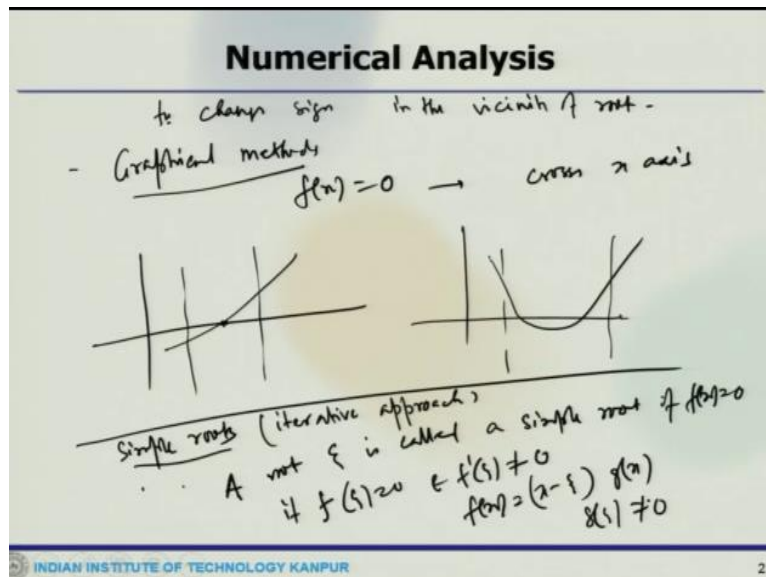 Numerical Analysis
to change sign in the vicinity of root -
- Graphical methods
f(x) = 0 → cross x axis
Simple roots (iterative approach)
A root ξ is called a simple root of f(x)=0
if f(ξ)=0 & f'(ξ) ≠ 0
f(x) = (x-ξ) g(x)
g(ξ) ≠ 0
INDIAN INSTITUTE OF TECHNOLOGY KANPUR 2